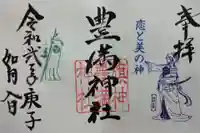 奉拝
癒と美の神
豊満神社
令和弐年庚子
如月